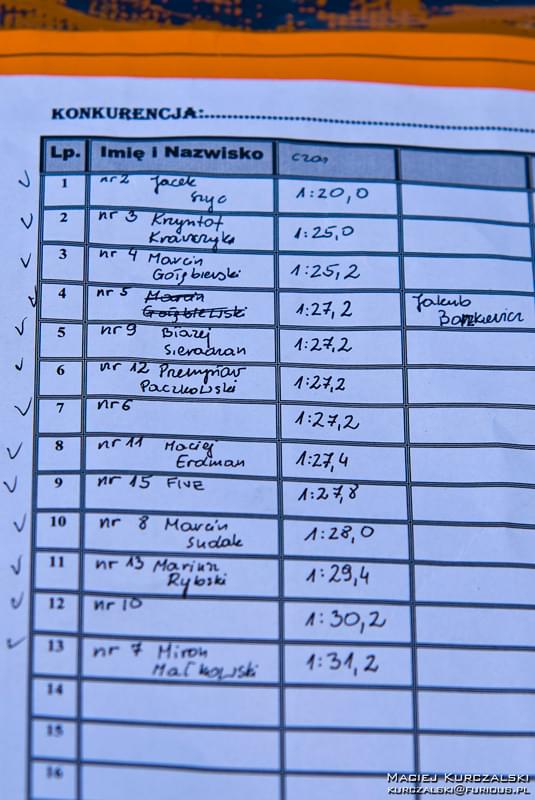 KONKURENCJA:
Lp. Imię i Nazwisko czas
1 nr 2 Jacek
1:20,0
2 nr 3 Krzysztof
Krawczyk 1:25,0
3 nr 4 Marcin
Gołębiewski 1:25,2
4 nr 5 Marcin 1:27,2 Jakub
Gołębiewski
5 nr 9 Błażej
Sieradzan 1:27,2
6 nr 12 Przemysław
Paczkowski 1:27,2
7 nr 6 1:27,2
8 nr 11 Maciej
Erdman 1:27,4
9 nr 15 FIVE 1:27,8
10 nr 8 Marcin
Sudak 1:28,0
11 nr 13 Mariusz
Rybski 1:29,4
12 nr 10 1:30,2
13 nr 7 Miron
Małkowski 1:31,2
14
15
16
MACIEJ KURCZALSKI
KURCZALSKI@FURIOUS.PL